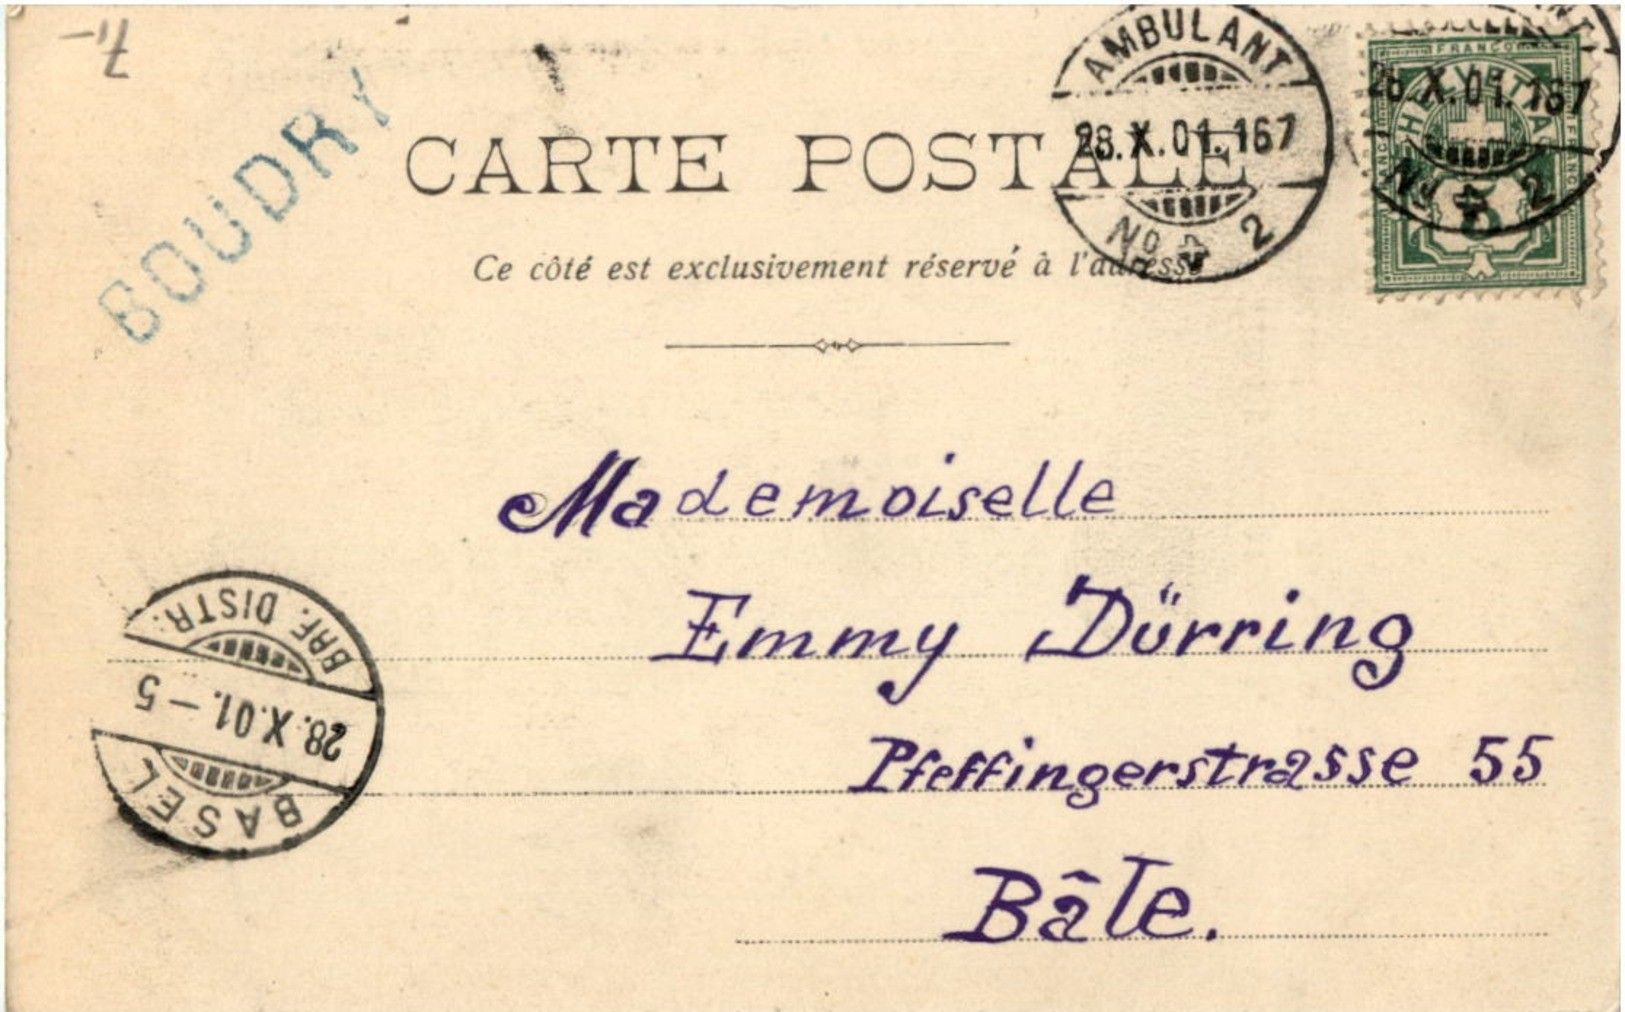 7.-
BOUDRY
CARTE POSTALE
Ce côté est exclusivement réservé à l'adresse
AMBULANT
28.X.01.167
No 2
AMBULANT
28.X.01.167
No 2
FRANCO
HELVETIA
5
Mademoiselle
Emmy Dürring
Pfeffingerstrasse 55
Bâle.
BASEL
28.X.01.-5
BRF. DISTR.